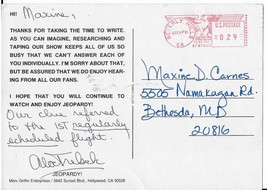 HI! Maxine,
THANKS FOR TAKING THE TIME TO WRITE.
AS YOU CAN IMAGINE, RESEARCHING AND
TAPING OUR SHOW KEEPS ALL OF US SO
BUSY THAT WE CAN'T ANSWER EACH OF
YOU INDIVIDUALLY. I'M SORRY ABOUT THAT,
BUT BE ASSURED THAT WE DO ENJOY HEAR-
ING FROM ALL OUR FANS.
I HOPE THAT YOU WILL CONTINUE TO
WATCH AND ENJOY JEOPARDY!
Our clue referred
to the 1ST regularly
scheduled flight.
Alex Trebek
JEOPARDY!
Merv Griffin Enterprises / 5842 Sunset Blvd., Hollywood, CA 90028
CA
U.S. POSTAGE
0.29
Maxine D. Carnes
5505 Namakagan Rd.
Bethesda, MD
20816